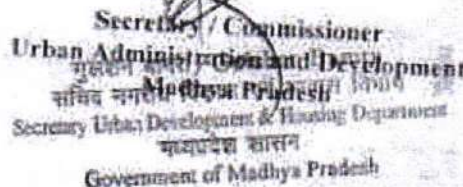 Secretary / Commissioner
Urban Administration and Development
Madhya Pradesh
सचिव नगरीय
Secretary Urban Development & Housing Department
मध्यप्रदेश शासन
Government of Madhya Pradesh